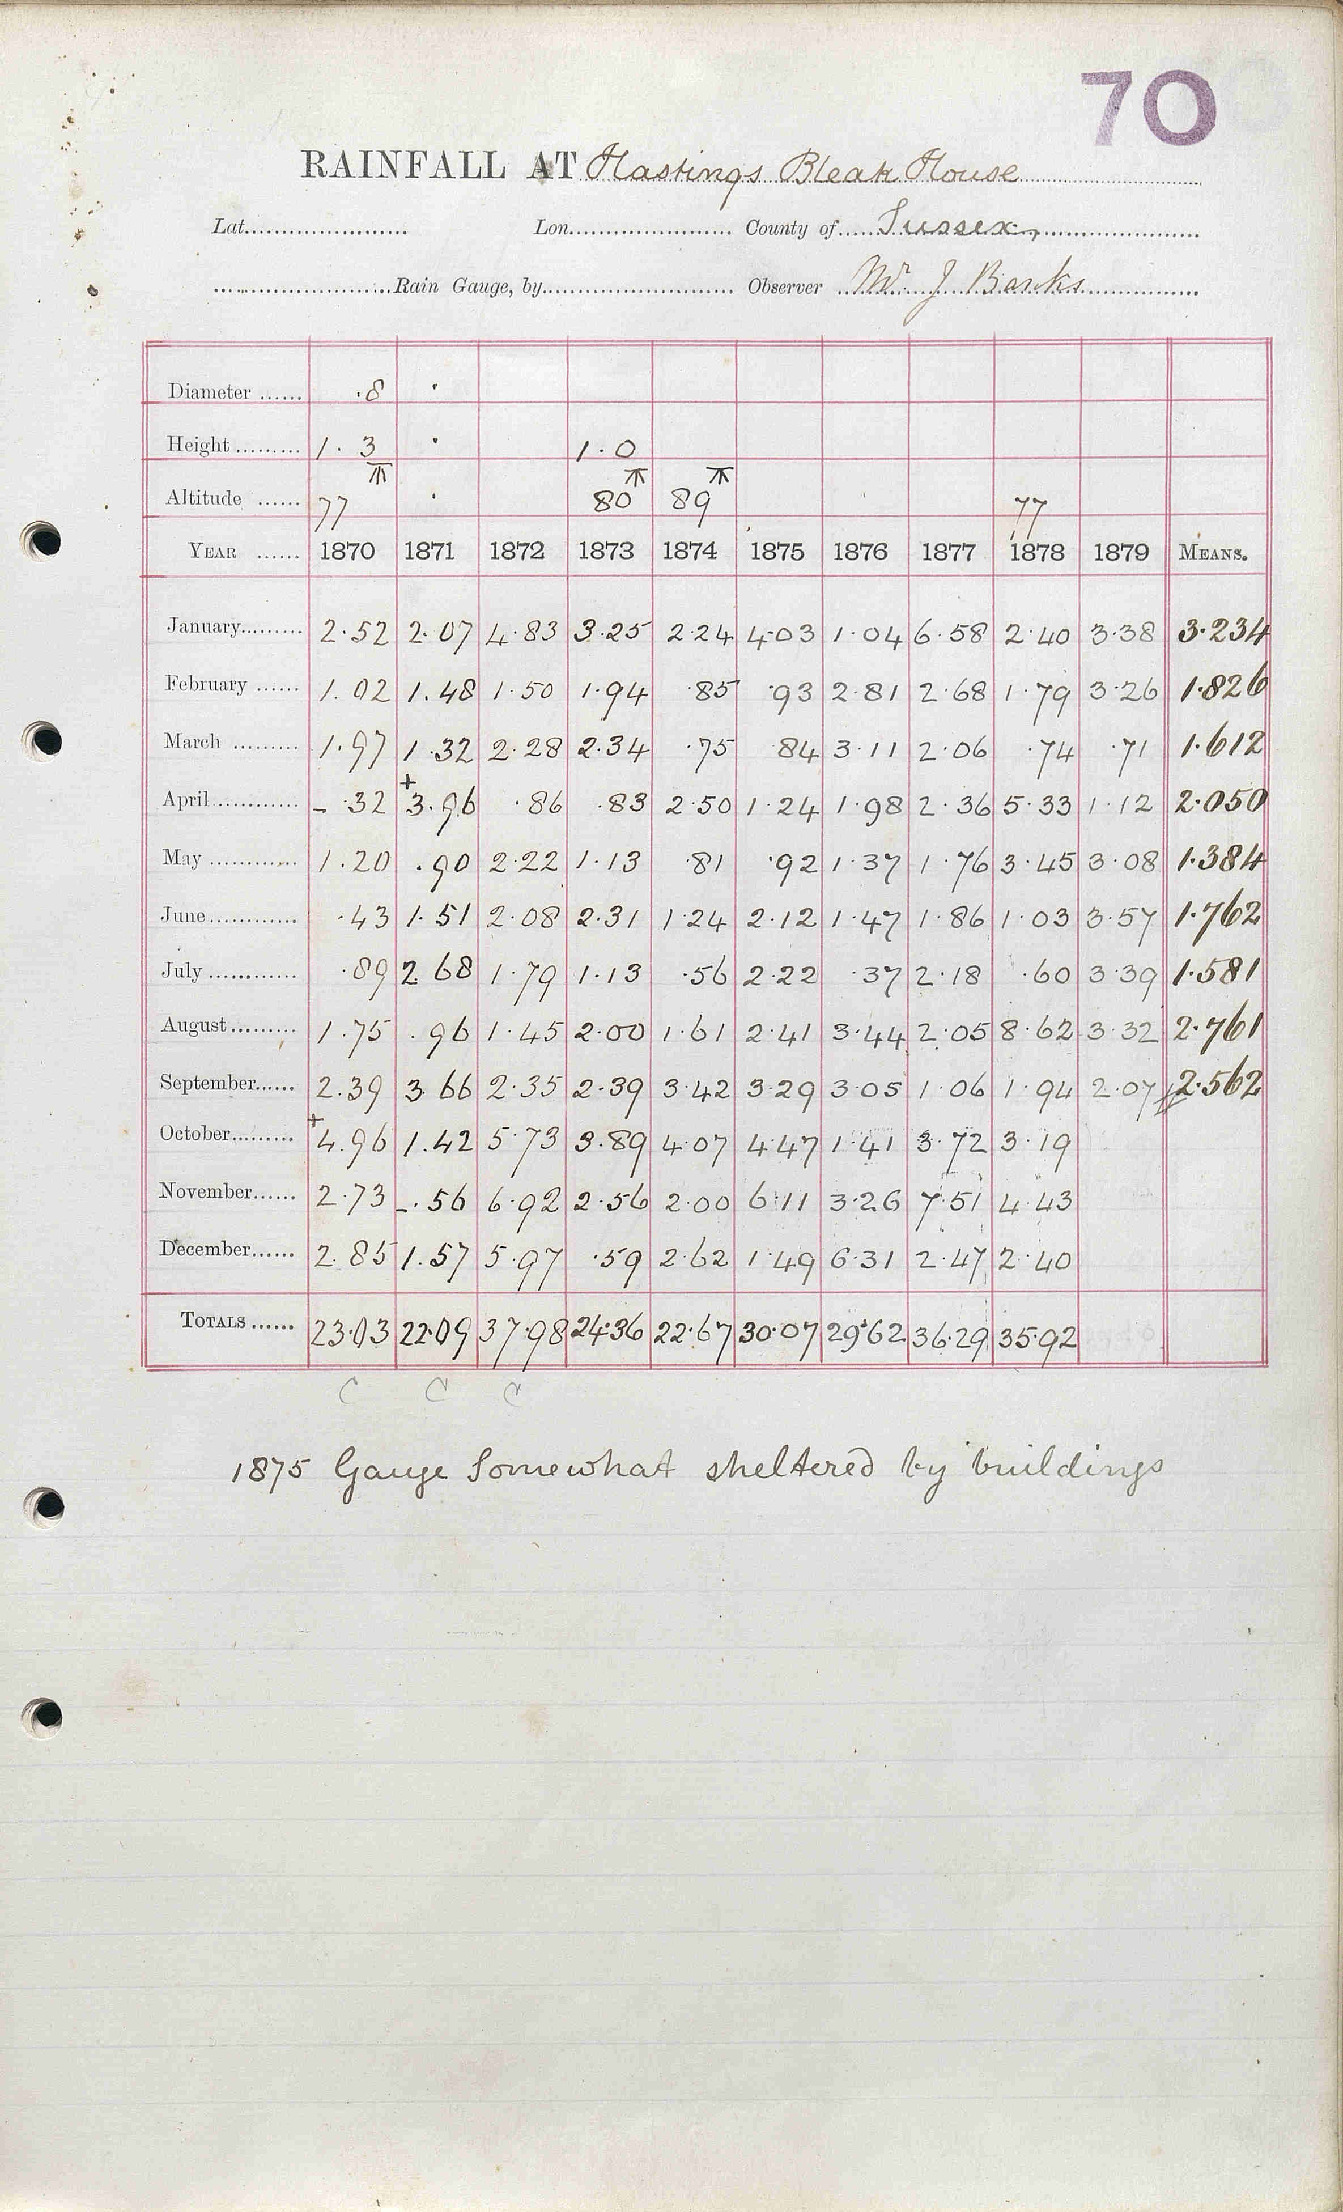 70
RAINFALL AT Hastings Bleak House
Lat. Lon. County of Sussex,
Rain Gauge, by Observer Mr J Banks
Diameter ...... .8 .
Height ......... 1.3 . 1.0
Altitude ...... 77 . 80 89 77
YEAR ...... 1870 1871 1872 1873 1874 1875 1876 1877 1878 1879 MEANS.
January......... 2.52 2.07 4.83 3.25 2.24 4.03 1.04 6.58 2.40 3.38 3.234
February ...... 1.02 1.48 1.50 1.94 .85 .93 2.81 2.68 1.79 3.26 1.826
March ......... 1.97 1.32 2.28 2.34 .75 .84 3.11 2.06 .74 .71 1.612
April............ - .32 + 3.96 .86 .83 2.50 1.24 1.98 2.36 5.33 1.12 2.050
May ............ 1.20 .90 2.22 1.13 .81 .92 1.37 1.76 3.45 3.08 1.384
June............ .43 1.51 2.08 2.31 1.24 2.12 1.47 1.86 1.03 3.57 1.762
July ............ .89 2.68 1.79 1.13 .56 2.22 .37 2.18 .60 3.39 1.581
August......... 1.75 .96 1.45 2.00 1.61 2.41 3.44 2.05 8.62 3.32 2.761
September...... 2.39 3.66 2.35 2.39 3.42 3.29 3.05 1.06 1.94 2.07 2.562
October......... + 4.96 1.42 5.73 3.89 4.07 4.47 1.41 3.72 3.19
November...... 2.73 - .56 6.92 2.56 2.00 6.11 3.26 7.51 4.43
December...... 2.85 1.57 5.97 .59 2.62 1.49 6.31 2.47 2.40
TOTALS ...... 23.03 22.09 37.98 24.36 22.67 30.07 29.62 36.29 35.92
C C C
1875 Gauge Somewhat sheltered by buildings